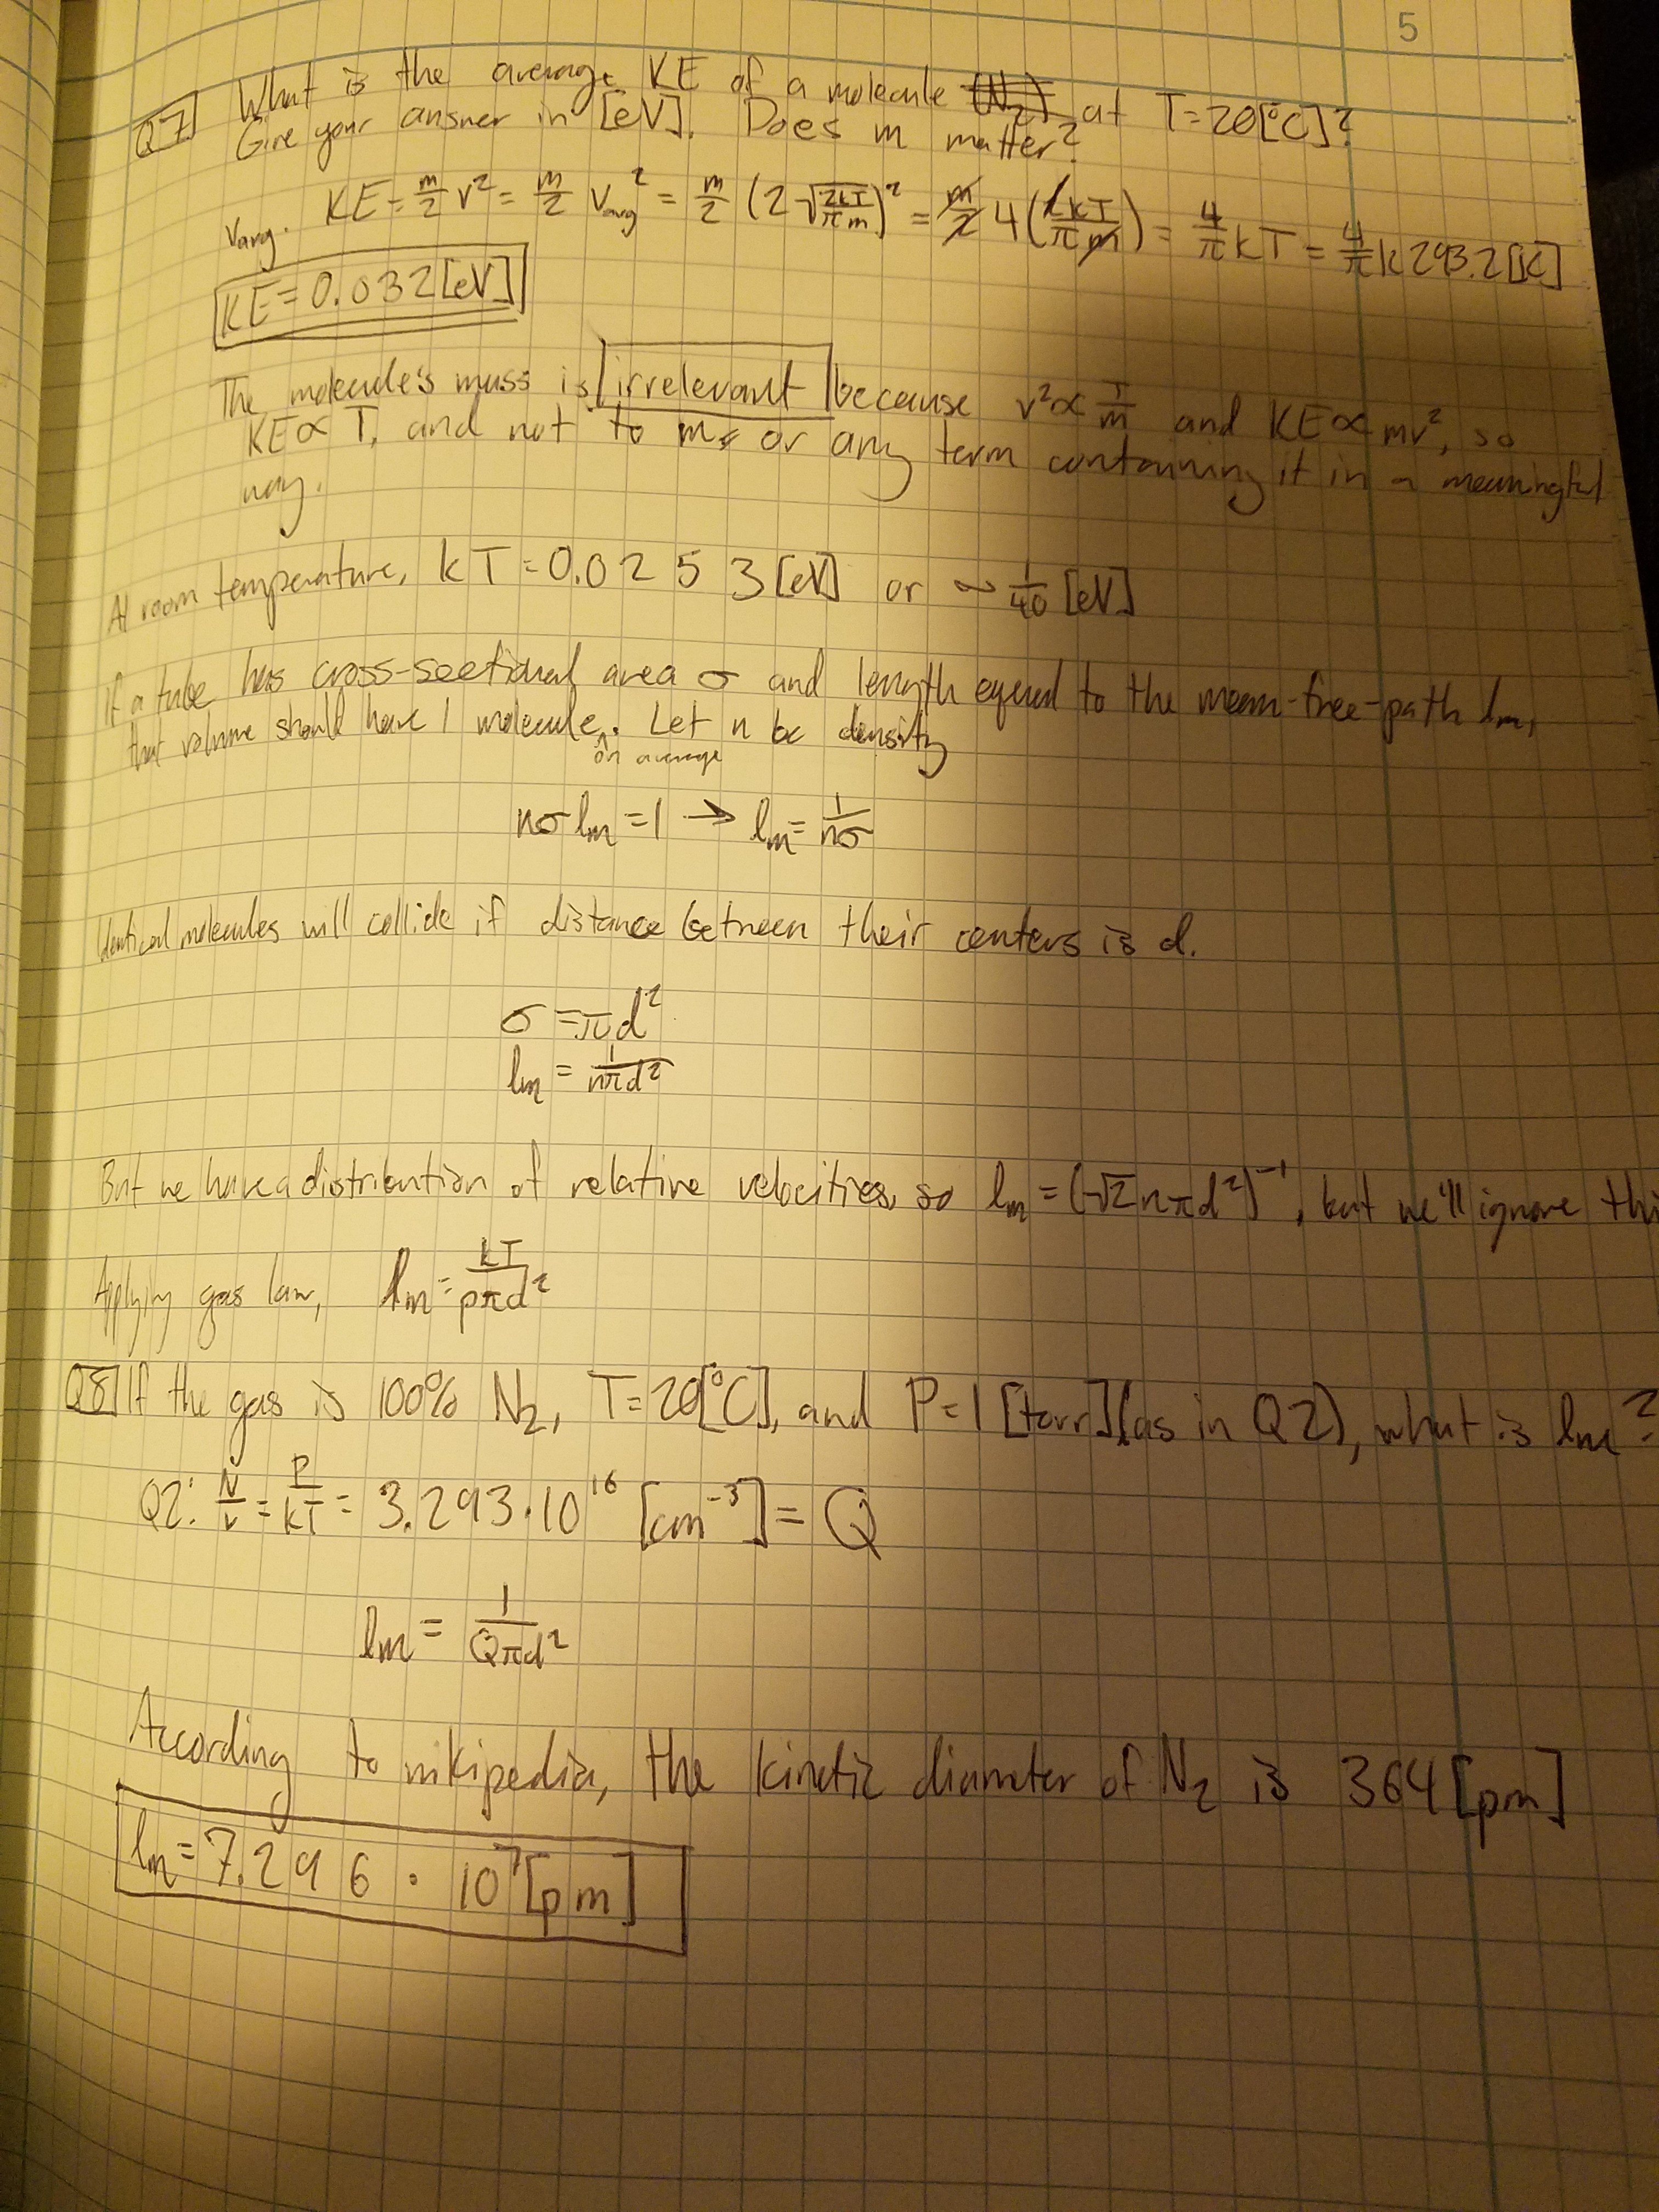 5
Q7 What is the average KE of a molecule (N₂) at T=20[°C]?
Give your answer in [eV]. Does m matter?
v_avg. KE = m/2 v² = m/2 v_avg² = m/2 (2√(2kT/πm))² = m/2 4(2kT/πm) = 4/π kT = 4/π k 293.2[K]
KE = 0.032[eV]
The molecule's mass is irrelevant because v² ∝ T/m and KE ∝ mv², so
KE ∝ T, and not to m, or any term containing it in a meaningful
way.
At room temperature, kT = 0.0253[eV] or ~ 1/40 [eV]
If a tube has cross-sectional area σ and length equal to the mean-free-path lₘ,
that volume should have 1 molecule. Let n be density
^on average
nσlₘ = 1 → lₘ = 1/nσ
Identical molecules will collide if distance between their centers is d.
σ = πd²
lₘ = 1/nπd²
But we have a distribution of relative velocities, so lₘ = (√2nπd²)⁻¹, but we'll ignore thi
Applying gas law, lₘ = kT/pπd²
Q8 If the gas is 100% N₂, T=20[°C], and P=1[torr](as in Q2), what is lₘ?
Q2: N/V = P/kT = 3.293·10¹⁶ [cm⁻³] = Q
lₘ = 1/Qπd²
According to wikipedia, the kinetic diameter of N₂ is 364[pm]
lₘ = 7.296 · 10⁷[pm]